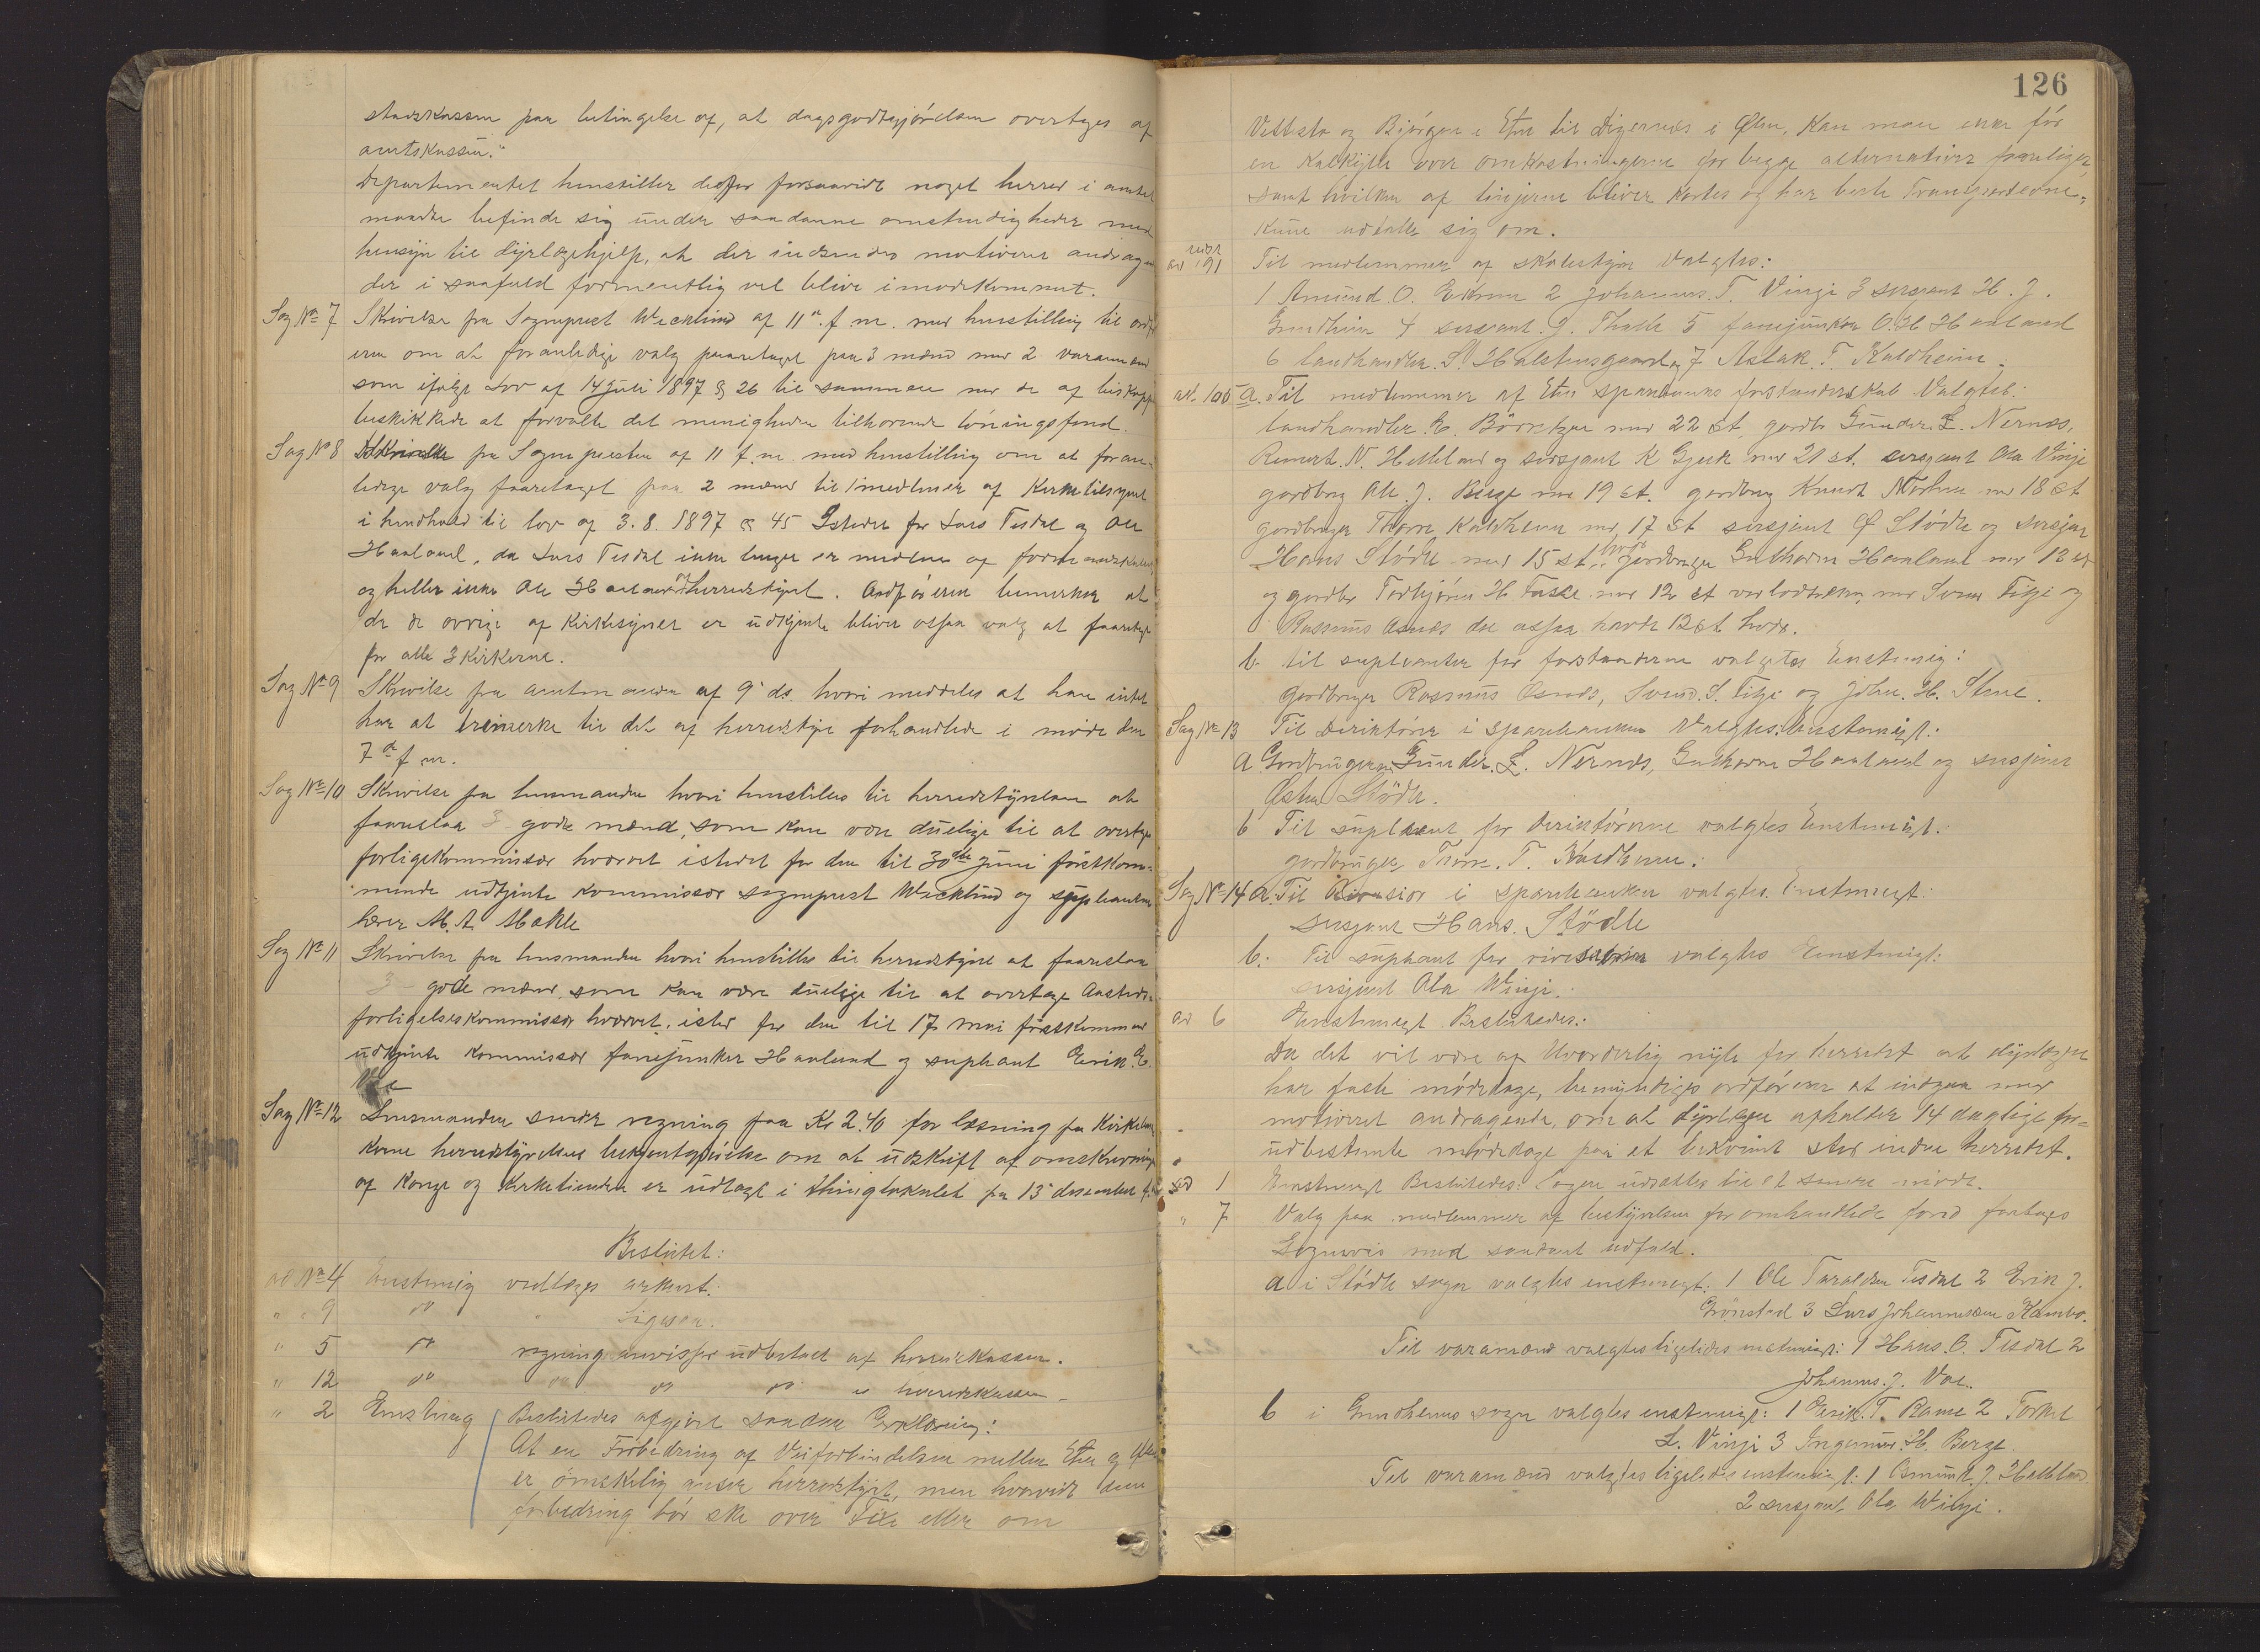 statskassen paa betingelse af, at dagsgodtgjörelsen overtages af
amtskassen."
Departementet henstiller derfor forsaavidt noget herred i amtet
maatte befinde sig under saadanne omstendigheder med
hensyn til dyrlægehjelp, at der indsendes motiveret andragen
der i saafald formentlig vil blive imødekommet.
Sag No 7 Skrivelse fra Sogneprest Wecklund af 11te f. m. med henstilling til ordfø
eren om at foranledige valg foaretaget paa 3 mænd med 2 varamænd
som ifølge Lov af 14 juli 1897 § 26 til sammen med de af biskoppen
beskikkede at forvalte det menigheden tilhørende lönningsfond.
Sag No 8 Skrivelse fra Sognepresten af 11 f. m. med henstilling om at foran-
ledige valg faaretaget paa 2 mænd til medlemmer af Kirketilsynet
i henhold til lov af 3. 8. 1897 § 45 Istedet for Lars Tesdal og Ole
Haaland, da Lars Tesdal ikke længer er medlem af formandskabet
og heller ikke Ole Haaland af herredstyret. Ordføreren bemerker at
da de øvrige af Kirkesynet er udkjente bliver ossaa valg at faaretage
for alle 3 Kirkerne.
Sag No 9 Skrivelse fra amtmanden af 9de ds. hvori meddeles at han intet
har at bemerke til det af herredstyre forhandlede i møde den
7de f. m.
Sag No 10 Skrivelse fra lensmanden hvori henstilles til herredstyrelsen at
faareslaa 3 gode mænd, som kan være duelige til at overtage
forligskommissær hvervet istedet for den til 30de juni förstkom-
mende udtjente kommissær sogneprest Wecklund og supleanten
lærer M. A. Mahle
Sag No 11 Skrivelse fra lensmanden hvori henstilles til herredstyret at faareslaa
3 gode mænd, som kan være duelige til at overtage Aasteds-
forligelseskommissær hvervet, isted for den til 17 mai förstkommend
udtjente kommissær fanejunker Haaland og supleant Erik E.
Vee
Sag No 12 Lensmanden sender regning paa Kr 2.40 for læsning fra Kirkebak
kene herredstyrelsens bekjentgjörelse om at udskrift af omskrivning
af Konge og Kirketienden er udlagt i thinglokalet fra 13de desember f.
Beslutet:
ad No 4 Enstemig vedtages arkivert.
" " 9 do " Ligesaa.
" 5 do regning anvises udbetalt af herredskassen.
" 12 do do do do " herredskassen
" 2 Enstemig Beslutedes afgivet saadan Erklæring:
At en Forbedring af Veiforbindelsen mellem Etne og Ølen
er ønskelig anser herredstyret, men hvorvidt denne
forbedring bör ske over Fixe eller om
126
Vettsto og Bjørgen i Etne til Digernæs i Ølen, Kan man ikke før
en Kalkyle over omkostningerne for begge alternativer foreligger,
samt hvilken af linjerne bliver Kortes og har beste Transportevne,
Kune udtale sig om.
ad 91 Til medlemmer af skolestyre valgtes:
1 Amund. O. Ekrene 2 Johannes. T. Vinje 3 sersjant H. J.
Grindheim 4 sersjant. J. Thash 5 fanejunker O. H Haaland
6 landhandler. S. Halstensgaard og 7 Aslak. T. Kaldheim.
ad. 100 a. Til medlemmer af Etne sparebanks forstanderskab Valgtes:
landhandler. E. Börretzen med 22 st, gardbr Gunder. L. Nernæs,
Reinert. N. Helleland og sersjant K Gjerde med 21 st. sersjant Ola Vinje
gardbrg Ole. J. Berge med 19 st. gardbrg Knudt Mørken med 18 st
gardbruger Thore Kaldheim med 17 st sersjant Ø Stödle og sersjan
Hans Stödle med 15 st. hver gardbruger Guthorm Haaland med 13 st
og gardbr Torbjörn H. Taske med 12 st ved lodtrekn. med Svend Fitje og
Rasmus Osnæs der ossaa havde 12 st hver.
b. til supleanter for forstanderne valgtes Enstemig:
gardbruger Rasmus Osnæs, Svend. S. Fitje og John. H. Stene.
Sag No 13 Til Direktörer i sparebanken Valgtes Enstemigt:
a Gardbrugerne Gunder. L. Nernæs, Guthorm Haaland og sersjant
Østen Stödle.
b Til supleant for direktörerne valgtes Enstemigt:
gardbruger Thore. T. Kaldheim.
Sag No 14 a. Til Revisor i sparebanken valgtes Enstemigt:
sersjant Hans. Stödle
b. Til supleant for revisoren valgtes Enstemigt:
sersjant Ola Winje.
ad 6 Enstemigt Beslutedes:
Da det vil være af Uvurderlig nytte for herredet at dyrlægen
har faste mödedage, bemyndiges ordföreren at indgaa med
motiveret andragende, om at dyrlægen afholder 14 daglige for-
udbestemte mødedage paa et bekvemt sted inden herredet.
ad 1 Enstemigt Beslutedes: Sagen udsættes til et senere møde.
" 7 Valg paa medlemmer af bestyrelsen for omhandlede fond foretages
Sognevis med saadant udfald.
a i Stödle sogn valgtes enstemigt: 1 Ole Taraldsen Tesdal 2 Erik J.
Grönstad 3 Lars Johannesen Kambo.
Til varamænd valgtes ligeledes enstemigt: 1 Hans. O. Tesdal 2
Johannes. J. Vae.
b i Grindheims sogn valgtes enstemigt: 1 Erik. T. Rame 2 Torkel
L. Vinje 3 Ingemun. H. Berge
Til varamænd valgtes ligeledes enstemigt: 1 Osmund. J. Helleland
2 sersjant Ola Winje.